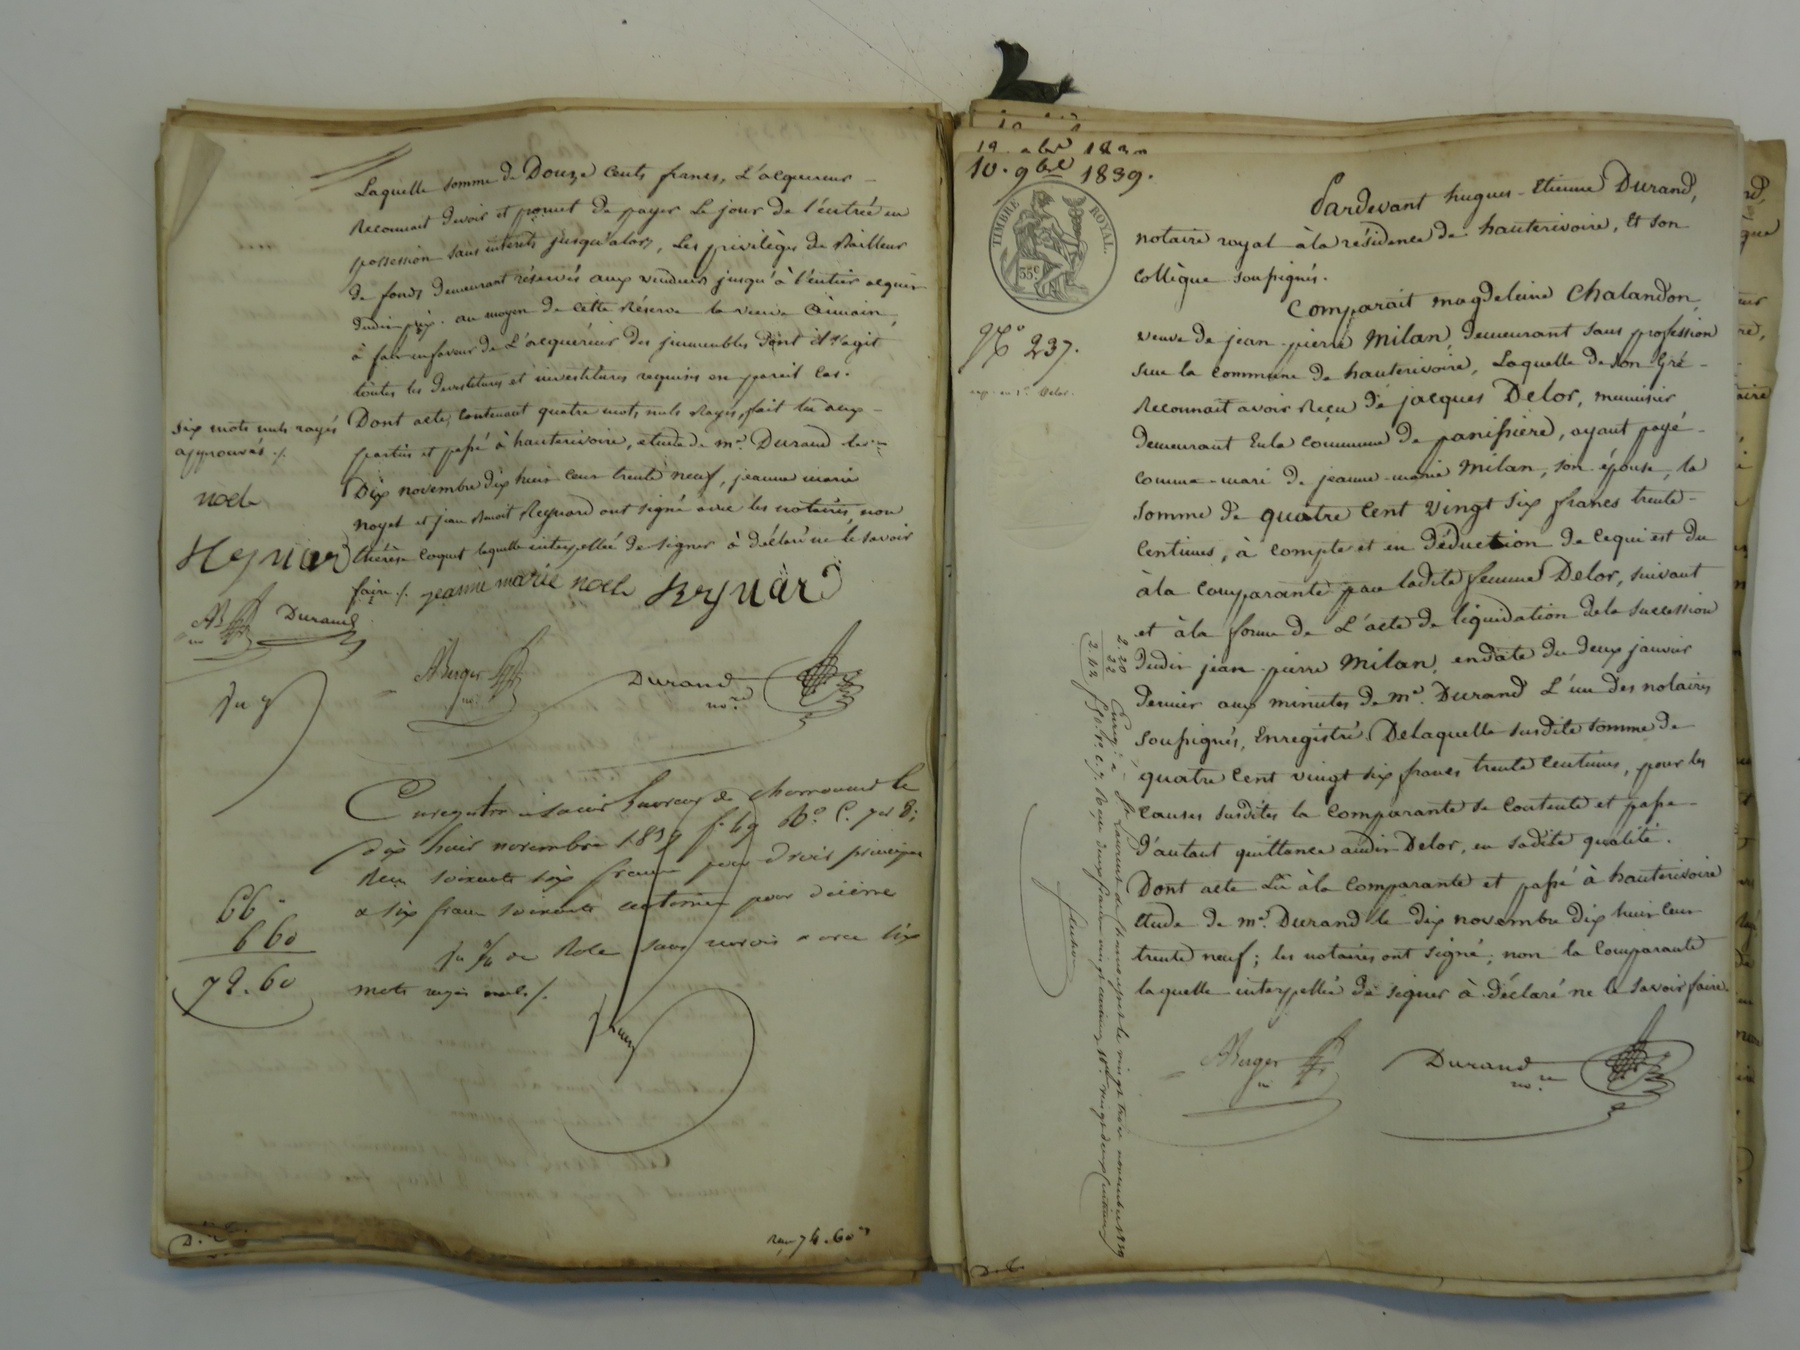 Laquelle somme de Douze cents francs, L'acquereur
Reconnait devoir et promet de payer Le jour de l'entrée en
possession sans interets jusqu'alors, Les privilèges de Bailleur
de fonds demeurant réservés aux vendeurs jusqu'à l'entier acquit
dudit prix. au moyen de cette Réserve la veuve
à fait en faveur de L'acquéreur des immeubles Dont il s'agit
toutes les devestitures et investitures requises en pareil cas.
Dont acte, contenant quatre mots nuls Rayés, fait lu aux
parties et passé à hauterivoire, etude de me. Durand le
Dix novembre dix huit cent trente neuf, jeanne marie
noyel et jean Benoit Reynard ont signé avec les notaires, non
thérèse coquet laquelle interpellée de signer à déclaré ne le savoir
faire ./. jeanne marie noel Reynard
six mots nuls rayés
approuvés ./.
noel
Reynard
AB Durand
ABerger Durand
nre.
Enregistré à Saint Laurent de chamousset le
dix huit novembre 1839 fo. 69 Ro. C. 7 et 8;
Reçu soixante six francs pour droit principal
& six francs soixante centimes pour dixième
sans renvois
mots rayés nuls ./.
66 "
6 60
72.60
10. 9bre 1839.
TIMBRE ROYAL.
35c
No 237.
exp. en 1. Delor.
Pardevant hugues-Etienne Durand,
notaire royal à la résidence de hauterivoire, Et son
collègue soussignés.
Comparait magdeleine Chalandon,
veuve de jean-pierre Milan, demeurant sans profession
sur la commune de hauterivoire, Laquelle de son Gré
Reconnait avoir Reçu de jacques Delor, menuisier
demeurant En la commune de panissière, ayant payé
comme mari de jeanne-marie Milan, son épouse, la
somme de quatre Cent Vingt Six francs trente
Centimes, à compte et en déduction de ce qui est Du
à la comparante par ladite femme Delor, suivant
et à la forme de L'acte de liquidation de la succession
dudit jean-pierre Milan, en date du deux janvier
dernier aux minutes de me. Durand L'un des notaires
soussignés, Enregistré. De laquelle susdite somme de
quatre Cent vingt six francs trente centimes, pour les
causes susdites la comparante se contente et passe
d'autant quittance audit Delor, en sadite qualité.
Dont acte Lu à la comparante et passé a hauterivoire
etude de me. Durand le dix novembre dix huit cent
trente neuf; les notaires ont signé, non la comparante
laquelle interpellée de signer à déclaré ne le savoir faire.
ABerger Durand
nre.
2.20
22
2.42
Enreg. à St Laurent de Chamousset le vingt trois novembre 1839
Reçu deux francs vingt centimes, 10me vingt deux centimes